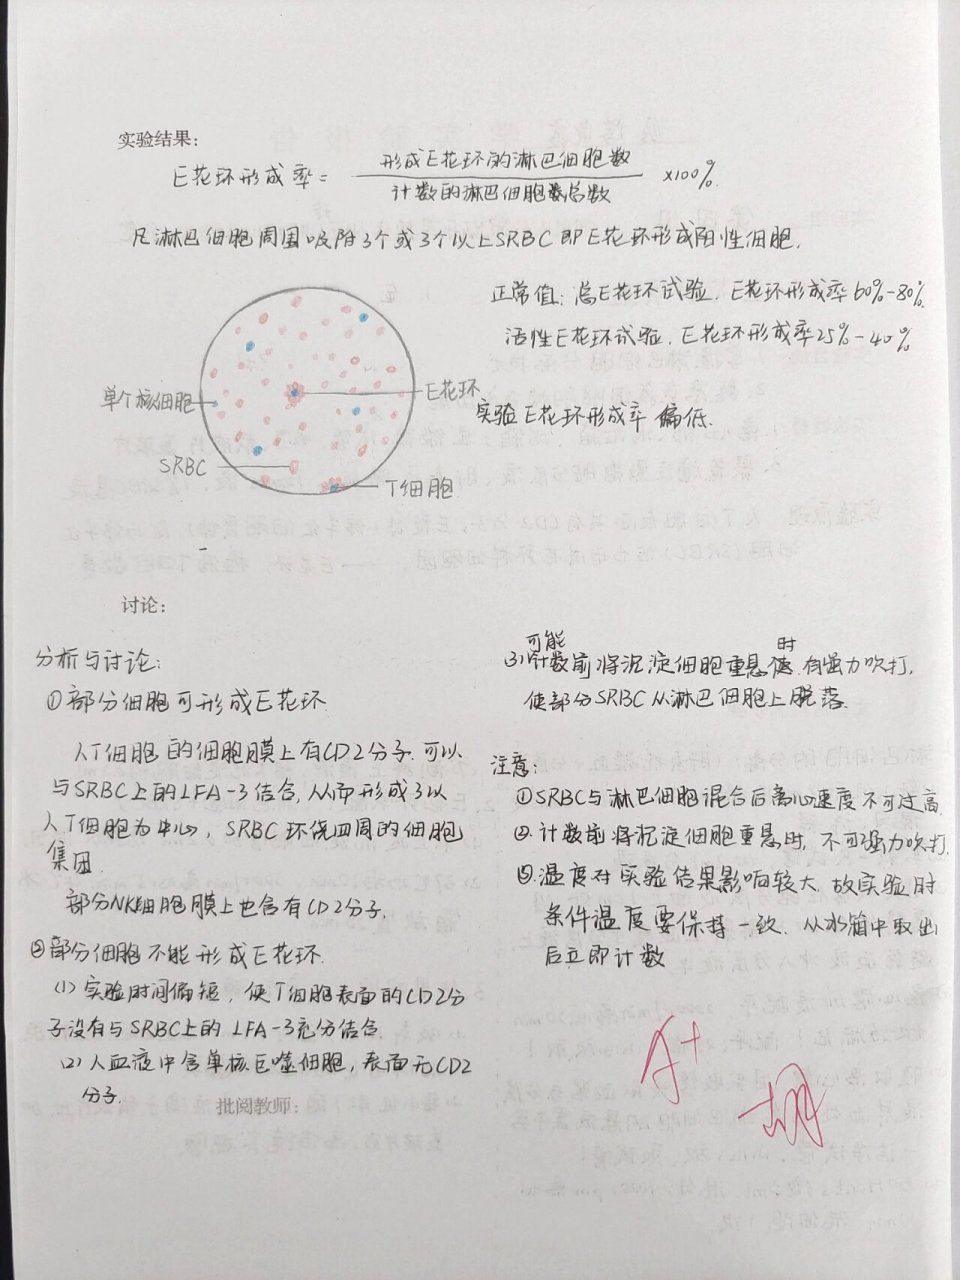 实验结果:
E花环形成率 = 形成E花环的淋巴细胞数
计数的淋巴细胞总数 ×100%.
凡淋巴细胞周围吸附3个或3个以上SRBC即E花环形成阳性细胞.
正常值: 总E花环试验, E花环形成率60%-80%.
活性E花环试验, E花环形成率25%-40%
单个核细胞
E花环
实验E花环形成率 偏低.
SRBC
T细胞
讨论:
分析与讨论:
①部分细胞可形成E花环.
人T细胞的细胞膜上有CD2分子.可以
与SRBC上的LFA-3结合,从而形成了以
人T细胞为中心, SRBC环绕四周的细胞
集团.
部分NK细胞膜上也含有CD2分子.
②部分细胞不能形成E花环.
(1) 实验时间偏短, 使T细胞表面的CD2分
子没有与SRBC上的LFA-3充分结合.
(2) 人血液中含单核巨噬细胞, 表面无CD2
分子.
(3)可能计数前将沉淀细胞重悬时有强力吹打,
使部分SRBC从淋巴细胞上脱落.
注意:
①SRBC与淋巴细胞混合后离心速度不可过高.
②计数前将沉淀细胞重悬时, 不可强力吹打.
③温度对实验结果影响较大. 故实验时
条件温度要保持一致. 从冰箱中取出
后立即计数
批阅教师:
A+
胡